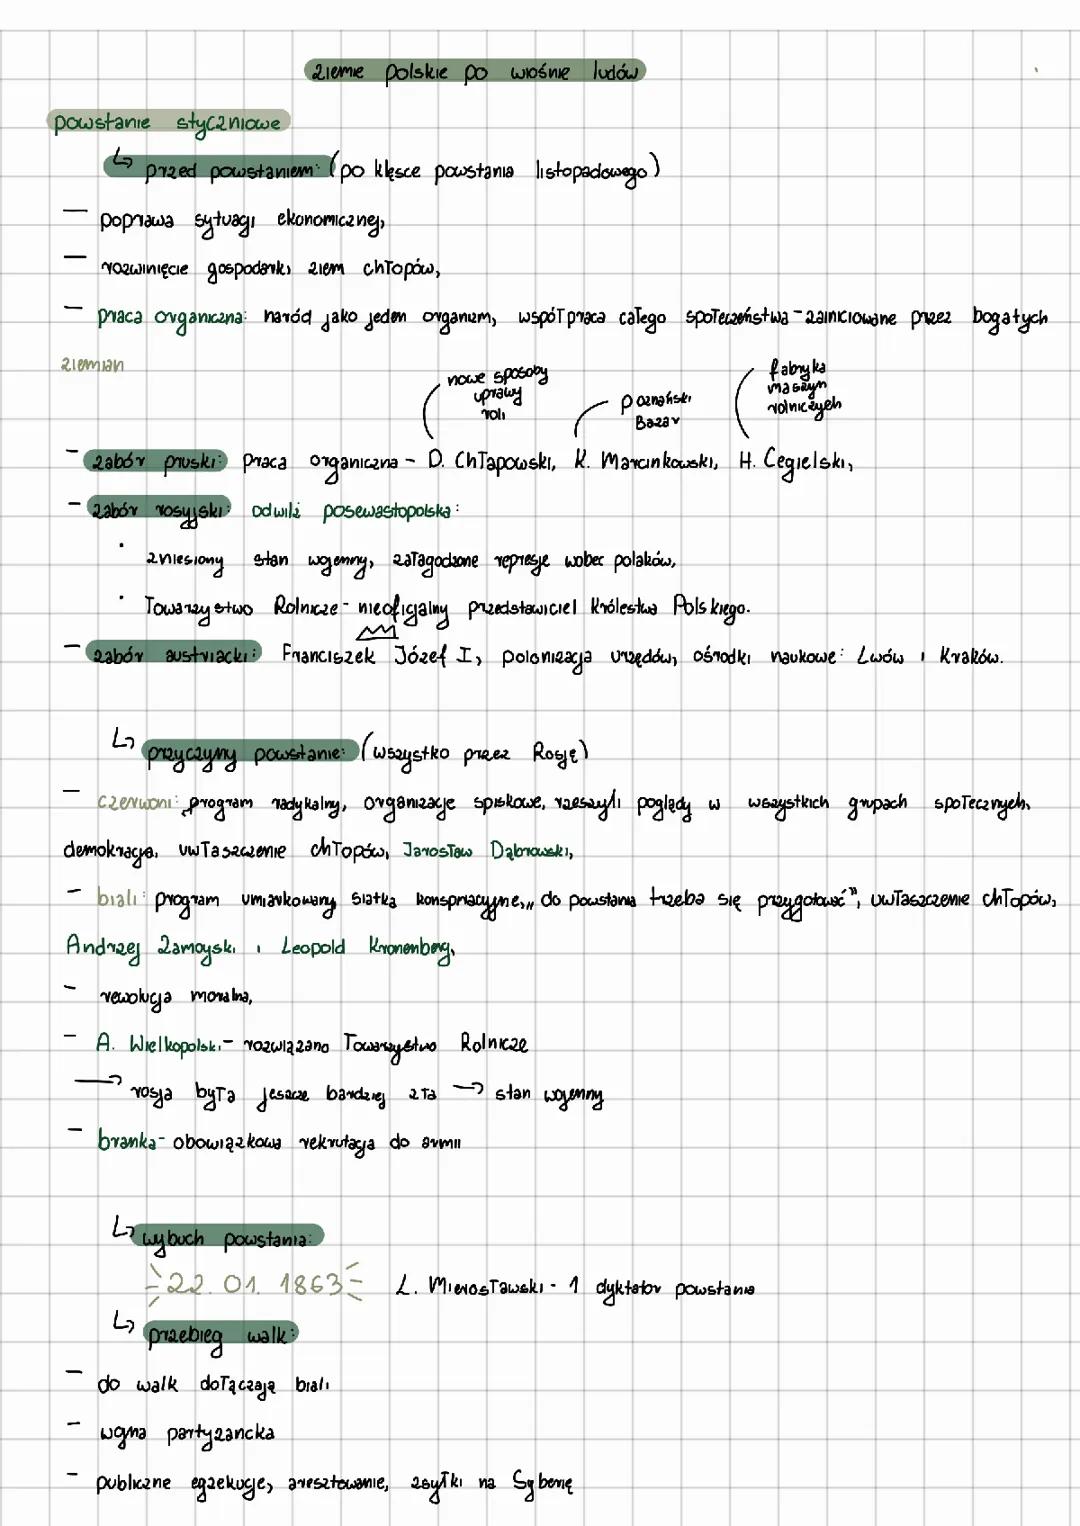 ziemie polskie po wiośnie ludów
powstanie styczniowe
↳ przed powstaniem: (po klęsce powstania listopadowego)
— poprawa sytuacji ekonomicznej,
— rozwinięcie gospodarki ziem chłopów,
— praca organiczna: naród jako jeden organizm, współpraca całego społeczeństwa - zainicjowane przez bogatych
ziemian
nowe sposoby uprawy roli
poznański Bazar
fabryka maszyn rolniczych
- zabór pruski: praca organiczna - D. Chłapowski, K. Marcinkowski, H. Cegielski,
- zabór rosyjski: odwilż posewastopolska:
• zniesiony stan wojenny, załagodzone represje wobec polaków,
• Towarzystwo Rolnicze - nieoficjalny przedstawiciel Królestwa Polskiego.
- zabór austriacki: Franciszek Józef I, polonizacja urzędów, ośrodki naukowe: Lwów i Kraków.
↳ przyczyny powstanie: (wszystko przez Rosję)
— czerwoni: program radykalny, organizacje spiskowe, rzeszyli poglądy w wszystkich grupach społecznych,
demokracja, uwłaszczenie chłopów, Jarosław Dąbrowski,
- biali: program umiarkowany, siatka konspiracyjne, „do powstania trzeba się przygotować”, uwłaszczenie chłopów,
Andrzej Zamoyski i Leopold Kronenberg,
- rewolucja moralna,
- A. Wielkopolski - rozwiązano Towarzystwo Rolnicze
→ rosja była jeszcze bardziej zła → stan wojenny
- branka - obowiązkowa rekrutacja do armii
↳ wybuch powstania:
22.01.1863 L. Mierosławski - 1 dyktator powstania
↳ przebieg walk:
— do walk dołączają biali
- wojna partyzancka
- publiczne egzekucje, aresztowanie, zsyłki na Syberię